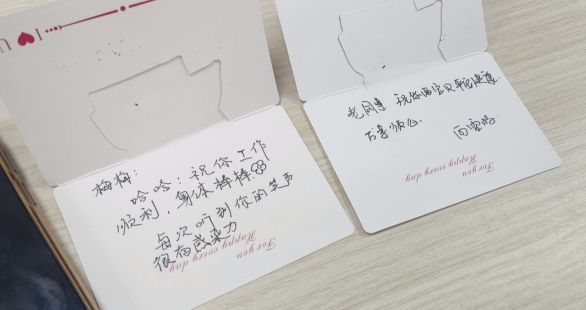 梅梅:
哈哈:祝你工作
顺利,身体棒棒
每次听到你的笑声
很有感染力
For you
Happy every day
祝你 宝贝平安健康
万事顺心.
For you
Happy every day